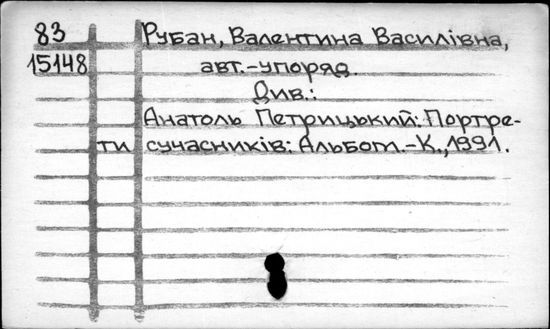 83 Рубан, Валентина Василівна,
15148 авт.-упоряд.
Див.:
Анатоль Петрицький: Портре-
ти сучасників: Альбом.-К., 1991.